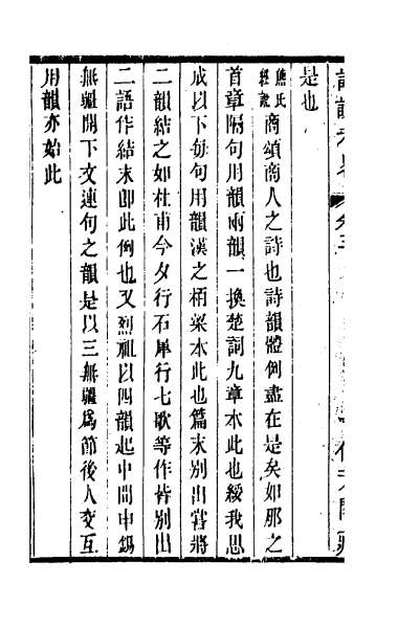 是也
熊氏經說商頌商人之詩也詩韻體例盡在是矣如那之
首章隔句用韻兩韻一換楚詞九章本此也綏我思
成以下每句用韻漢之柏梁本此也篇末別出嘗將
二韻結之如杜甫今夕行石犀行七歌等作皆別出
二語作結末即此例也又烈祖以四韻起中間申錫
無疆開下文連句之韻是以三無疆爲節後人交互
用韻亦始此